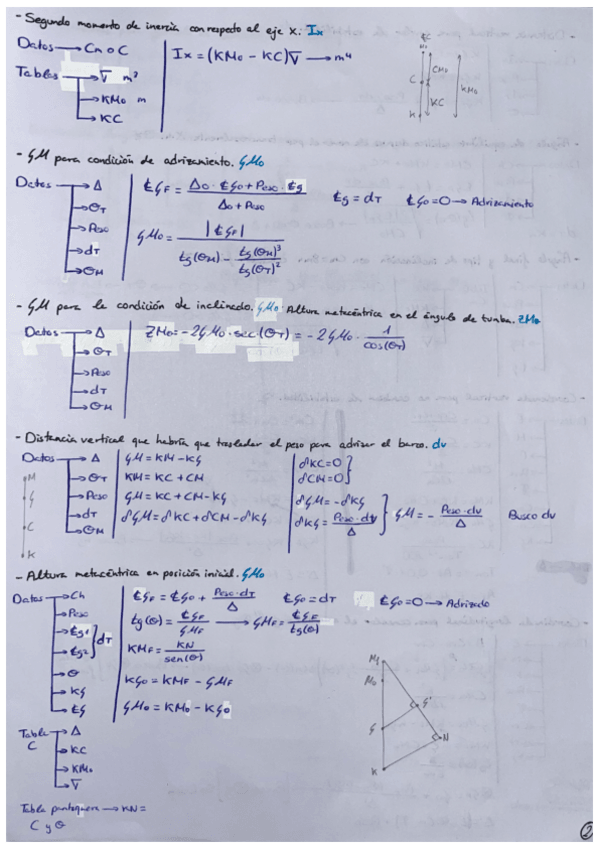 - Segundo momento de inercia con respecto al eje X. Ix
Datos → Cn o C
Ix = (KM₀ - KC)∇ → m⁴
Tablas → ∇ m³
→ KM₀ m
→ KC
M₀
C
K
CM₀
KC
KM₀
- GM para condición de adrizamiento. GM₀
Datos → Δ
→ θT
→ Peso
→ dT
→ θM
₵GF = (Δ₀ · ₵G₀ + Peso · ₵g) / (Δ₀ + Peso)
₵g = dT
₵G₀ = 0 → Adrizamiento
GM₀ = |₵GF| / (tg(θM) - tg(θM)³ / tg(θT)²)
- GM para la condición de inclinado. GM₀. Altura metacéntrica en el ángulo de tumba. ZM₀
Datos → Δ
→ θT
→ Peso
→ dT
→ θM
ZM₀ = -2GM₀ · sec(θT) = -2GM₀ · 1 / cos(θT)
- Distancia vertical que habría que trasladar el peso para adrizar el barco. dv
Datos → Δ
→ θT
→ Peso
→ dT
→ θM
M
G
C
K
GM = KM - KG
KM = KC + CM
GM = KC + CM - KG
δGM = δKC + δCM - δKG
δKC = 0 }
δCM = 0 }
δGM = -δKG
δKG = Peso · dv / Δ
} GM = - Peso · dv / Δ
Busco dv
- Altura metacéntrica en posición inicial. GM₀
Datos → Ch
→ Peso
→ ₵g¹
→ ₵g² } dT
→ θ
→ KG
→ ₵G
₵GF = ₵G₀ + Peso · dT / Δ
₵G₀ = dT
₵G₀ = 0 → Adrizado
tg(θ) = ₵GF / GMF → GMF = ₵GF / tg(θ)
KMF = KN / sen(θ)
KG₀ = KMF - GMF
GM₀ = KM₀ - KG₀
Tabla C → Δ
→ KC
→ KM₀
→ ∇
Tabla pantoquera → KN =
C y θ
M₀
G
G'
N
K
2